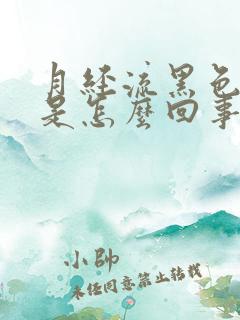 月经流黑色
是怎麼回事
小帥
未经同意禁止转载